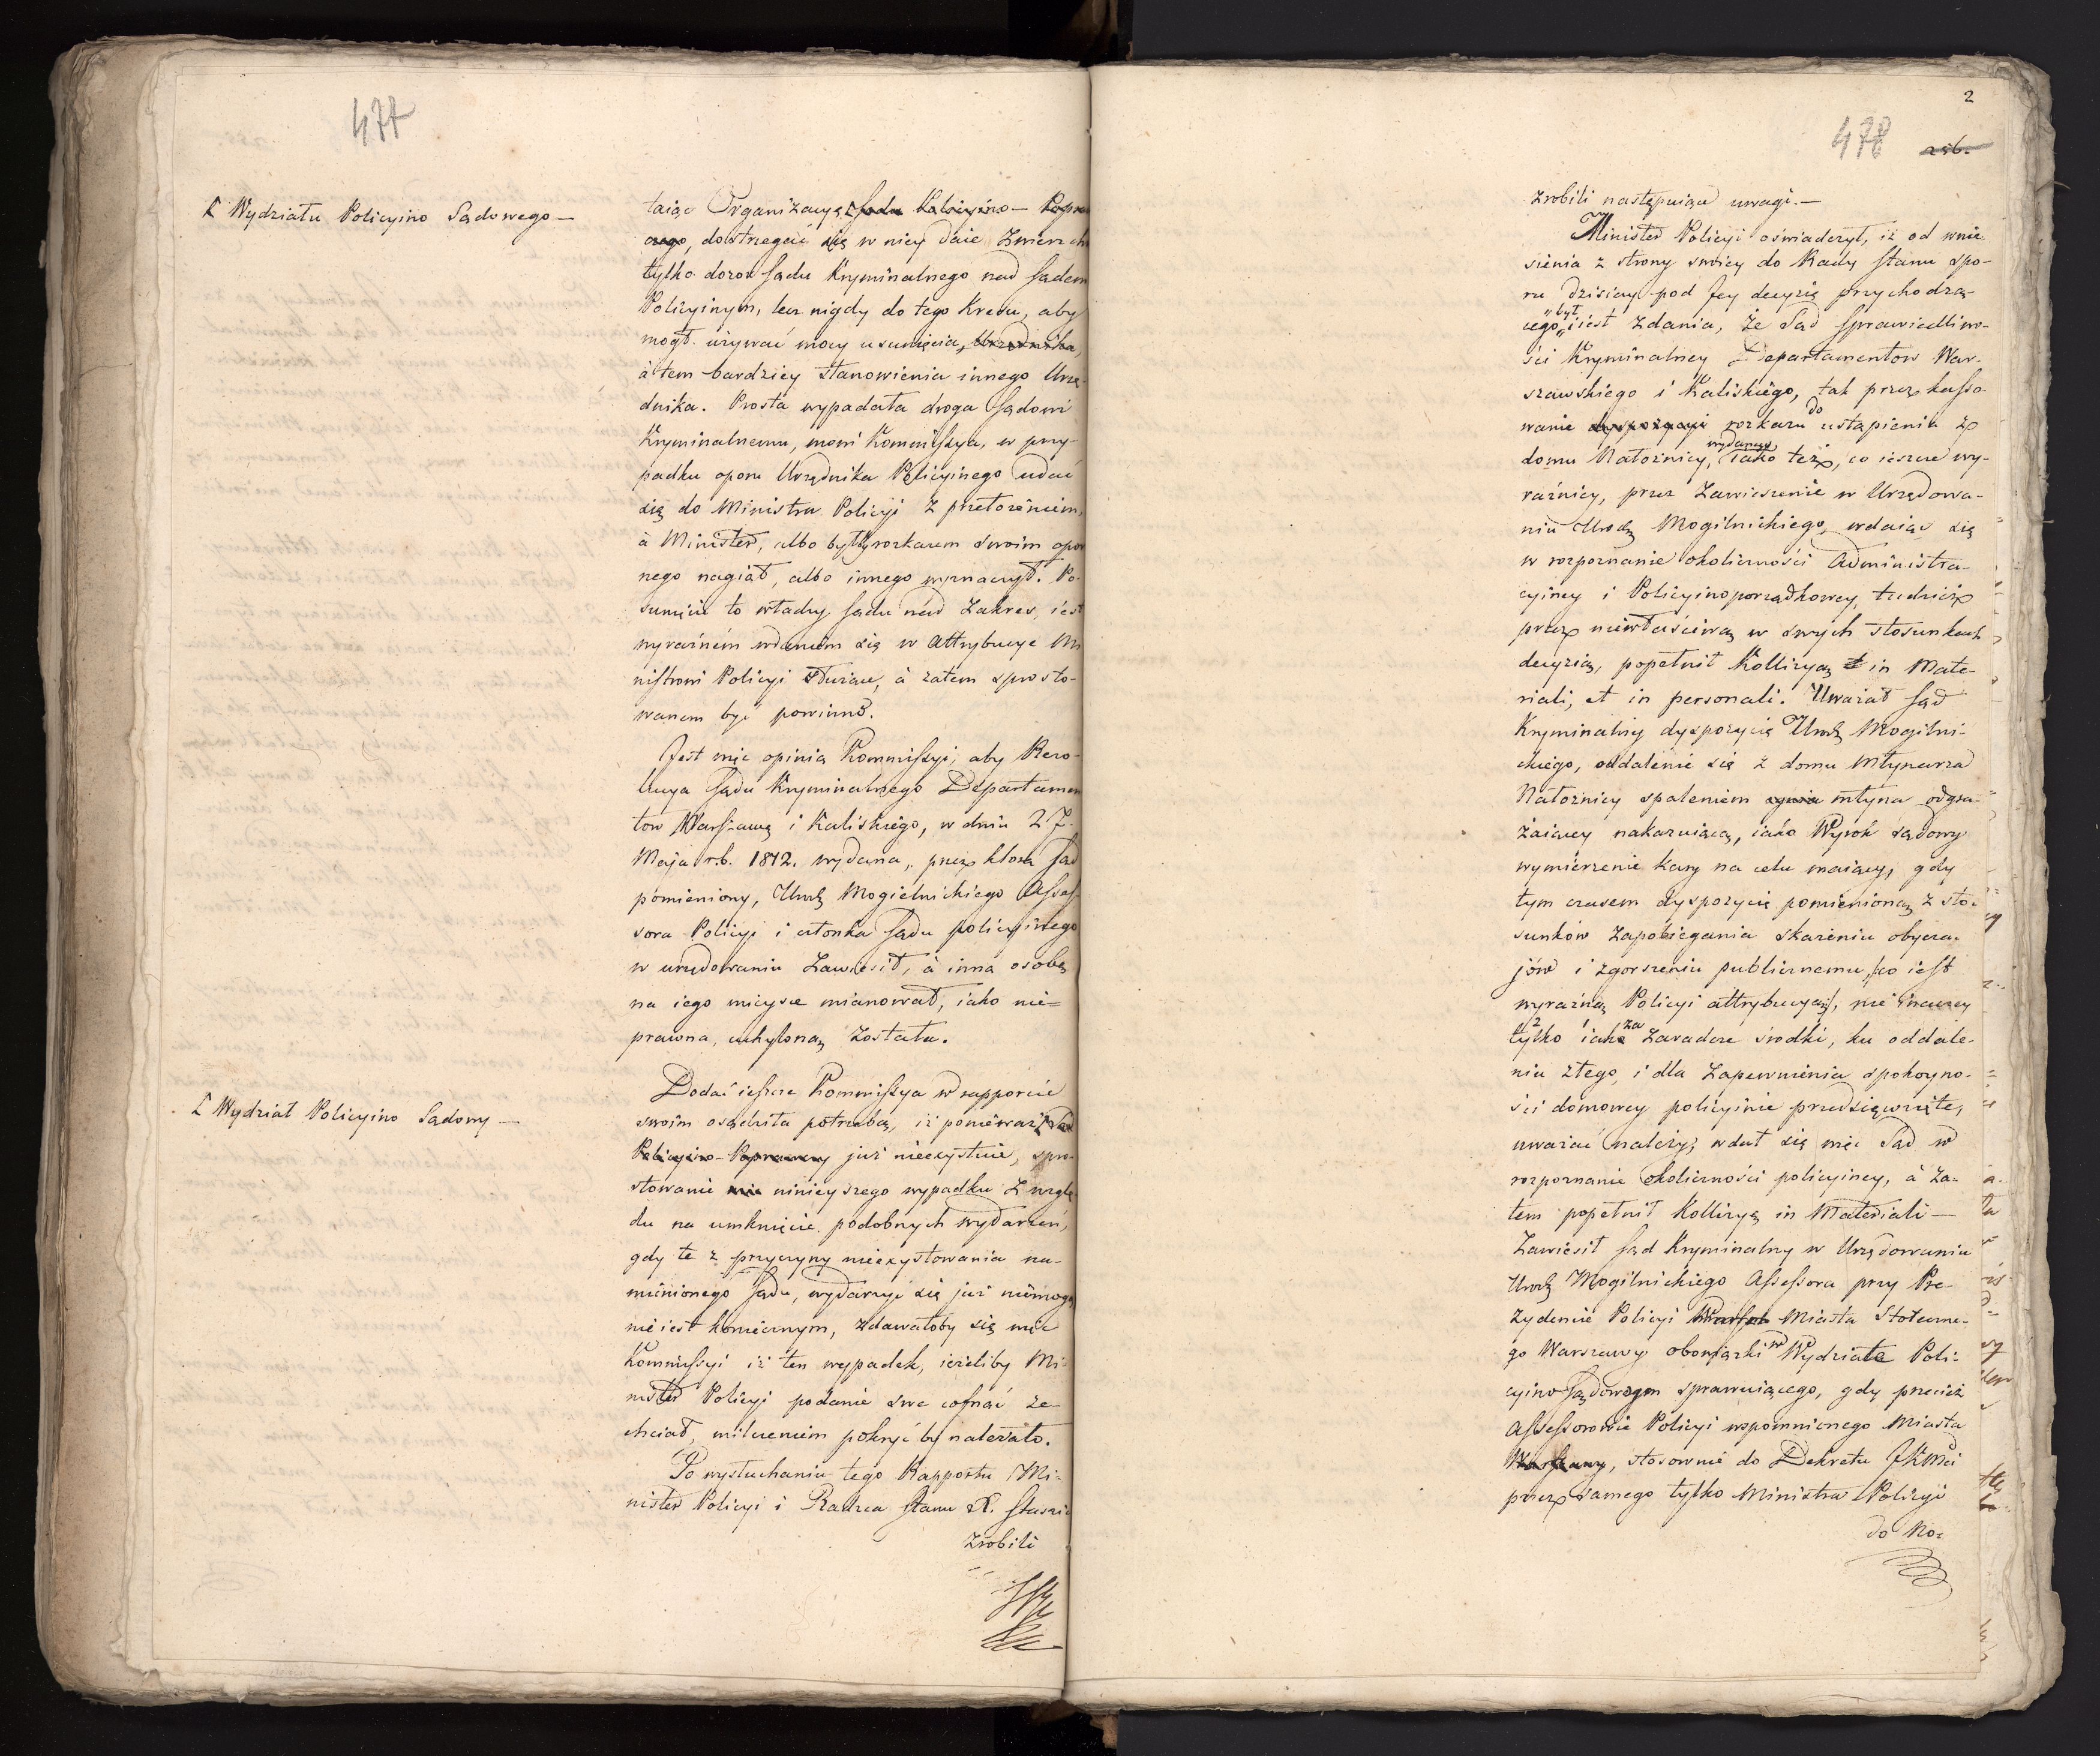 477
[ Wydziału Policyino Sądowego —
taiąc Organizacyą [Sądu Policyino — Popra
czego, dostrzegać się w niey daie Zwierzch
tylko dozor Sądu Kryminalnego nad Sądem
Policyinym, lecz nigdy do tego kresu, aby
mogł używać mocy usunięcia, Urzędnika,
à tem bardziey stanowienia innego Urzę-
dnika. Prosta wypadała droga Sądowi
Kryminalnemu, mowi Kommissya, w przy-
padku oporu Urzędnika Policyinego udać
się do Ministra Policyi z przełożeniem,
à Minister, albo byłby rozkazem swoim opor
nego nagiął, albo innego wyznaczył. Po-
sunięcie to władzy Sądu nad Zakres, iest
wyraźnem wdaniem się w Attrybucye Mi
nistrowi Policyi służące, à zatem sprosto-
wanem być powinno.
Jest więc opinią Kommissyi, aby Rezo-
lucya Sądu Kryminalnego Departamen
tow Warszawę i Kaliskiego, w dniu 27.
Maja r.b. 1812. wydana, przez ktorą Sąd
pomieniony, Urodz Mogielnickiego Assess
sora Policyi i członka Sądu policyinego
w urzędowaniu Zawiesił, à inną osobę
na iego mieysce mianował, iako nie=
prawna, uchyloną została.
[ Wydział Policyino Sądowy —
Dodać ieszcze Kommissya w rapporcie
swoim osądziła potrzebą, iż ponieważ [Sąd
Policyino-Poprawczy już nieexystuie, spro-
stowanie nie ninieyszego wypadku Z wzglę-
du na uniknięcie podobnych wydarzeń,
gdy te z przyczyny nieexystowania na-
mienionego Sądu, wydarzyć się już niemogą
nie iest koniecznym, zdawałoby się więc
Kommissyi iż ten wypadek, ieżeliby Mi-
nister Policyi podanie swe cofnąć ze-
chciał, milczeniem pokryć by należało.
Po wysłuchaniu tego Rapportu Mi-
nister Policyi i Radzca Stanu X. Staszic
zrobili
2
478 256.
zrobili następuiące uwagi. —
Minister Policyi oświadczył, iż od wnie-
sienia z strony swoiey do Rady Stanu spo-
ru dzisiay pod Jey decyzią przychodzą-
„był
cego „i iest zdania, że Sąd Sprawiedliwo-
ści Kryminalney Departamentow War-
szawskiego i Kaliskiego, tak przez kasso-
wanie dyspozycyi rozkazu do ustąpienia z
domu Nałożnicy, wydanego, Iako też, co ieszcze wy-
raźniey, przez Zawieszenie w Urzędowa-
niu Urodz Mogilnickiego, wdaiąc się
w rozpoznanie okoliczności Administra-
cyiney i Policyinoporządkowey, tudzież
przez niewłaściwą w swych stosunkach
decyzią, popełnił Kollizyą et in Mate-
riali, et in personali. Uważał Sąd
Kryminalny dyspozycią Urodz Mogilni-
ckiego, oddalenie się z domu Młynarza
Nałożnicy spaleniem młyna odgra-
żaiącey nakazuiącą, iako Wyrok sądowy
wymierzenie kary na celu maiący, gdy
tym czasem dyspozycię pomienioną z sto-
sunków Zapobiegania skażeniu obycza-
jów i zgorszeniu publicznemu, [co iest
wyraźną Policyi attrybucyą], nie inaczey
tylko iak za Zaradcze środki, ku oddale-
niu złego, i dla Zapewnienia spokoyno-
ści domowey policyinie przedsięwzięte,
uważać należy; wdał się więc Sąd w
rozpoznanie okoliczności policyiney, à za-
tem popełnił Kollizyą in Materiali —
Zawiesił Sąd Kryminalny w Urzędowaniu
Urodz Mogilnickiego Assessora przy Pre-
zydencie Policyi Miasta Stołeczne-
go Warszawy obowiązki w Wydziale Poli-
cyino-Sądowym sprawuiącego, gdy przecież
Assessorowie Policyi wspomnionego Miasta
Warszawy, stosownie do Dekretu JKMci
przez samego tylko Ministra Policyi
do No=